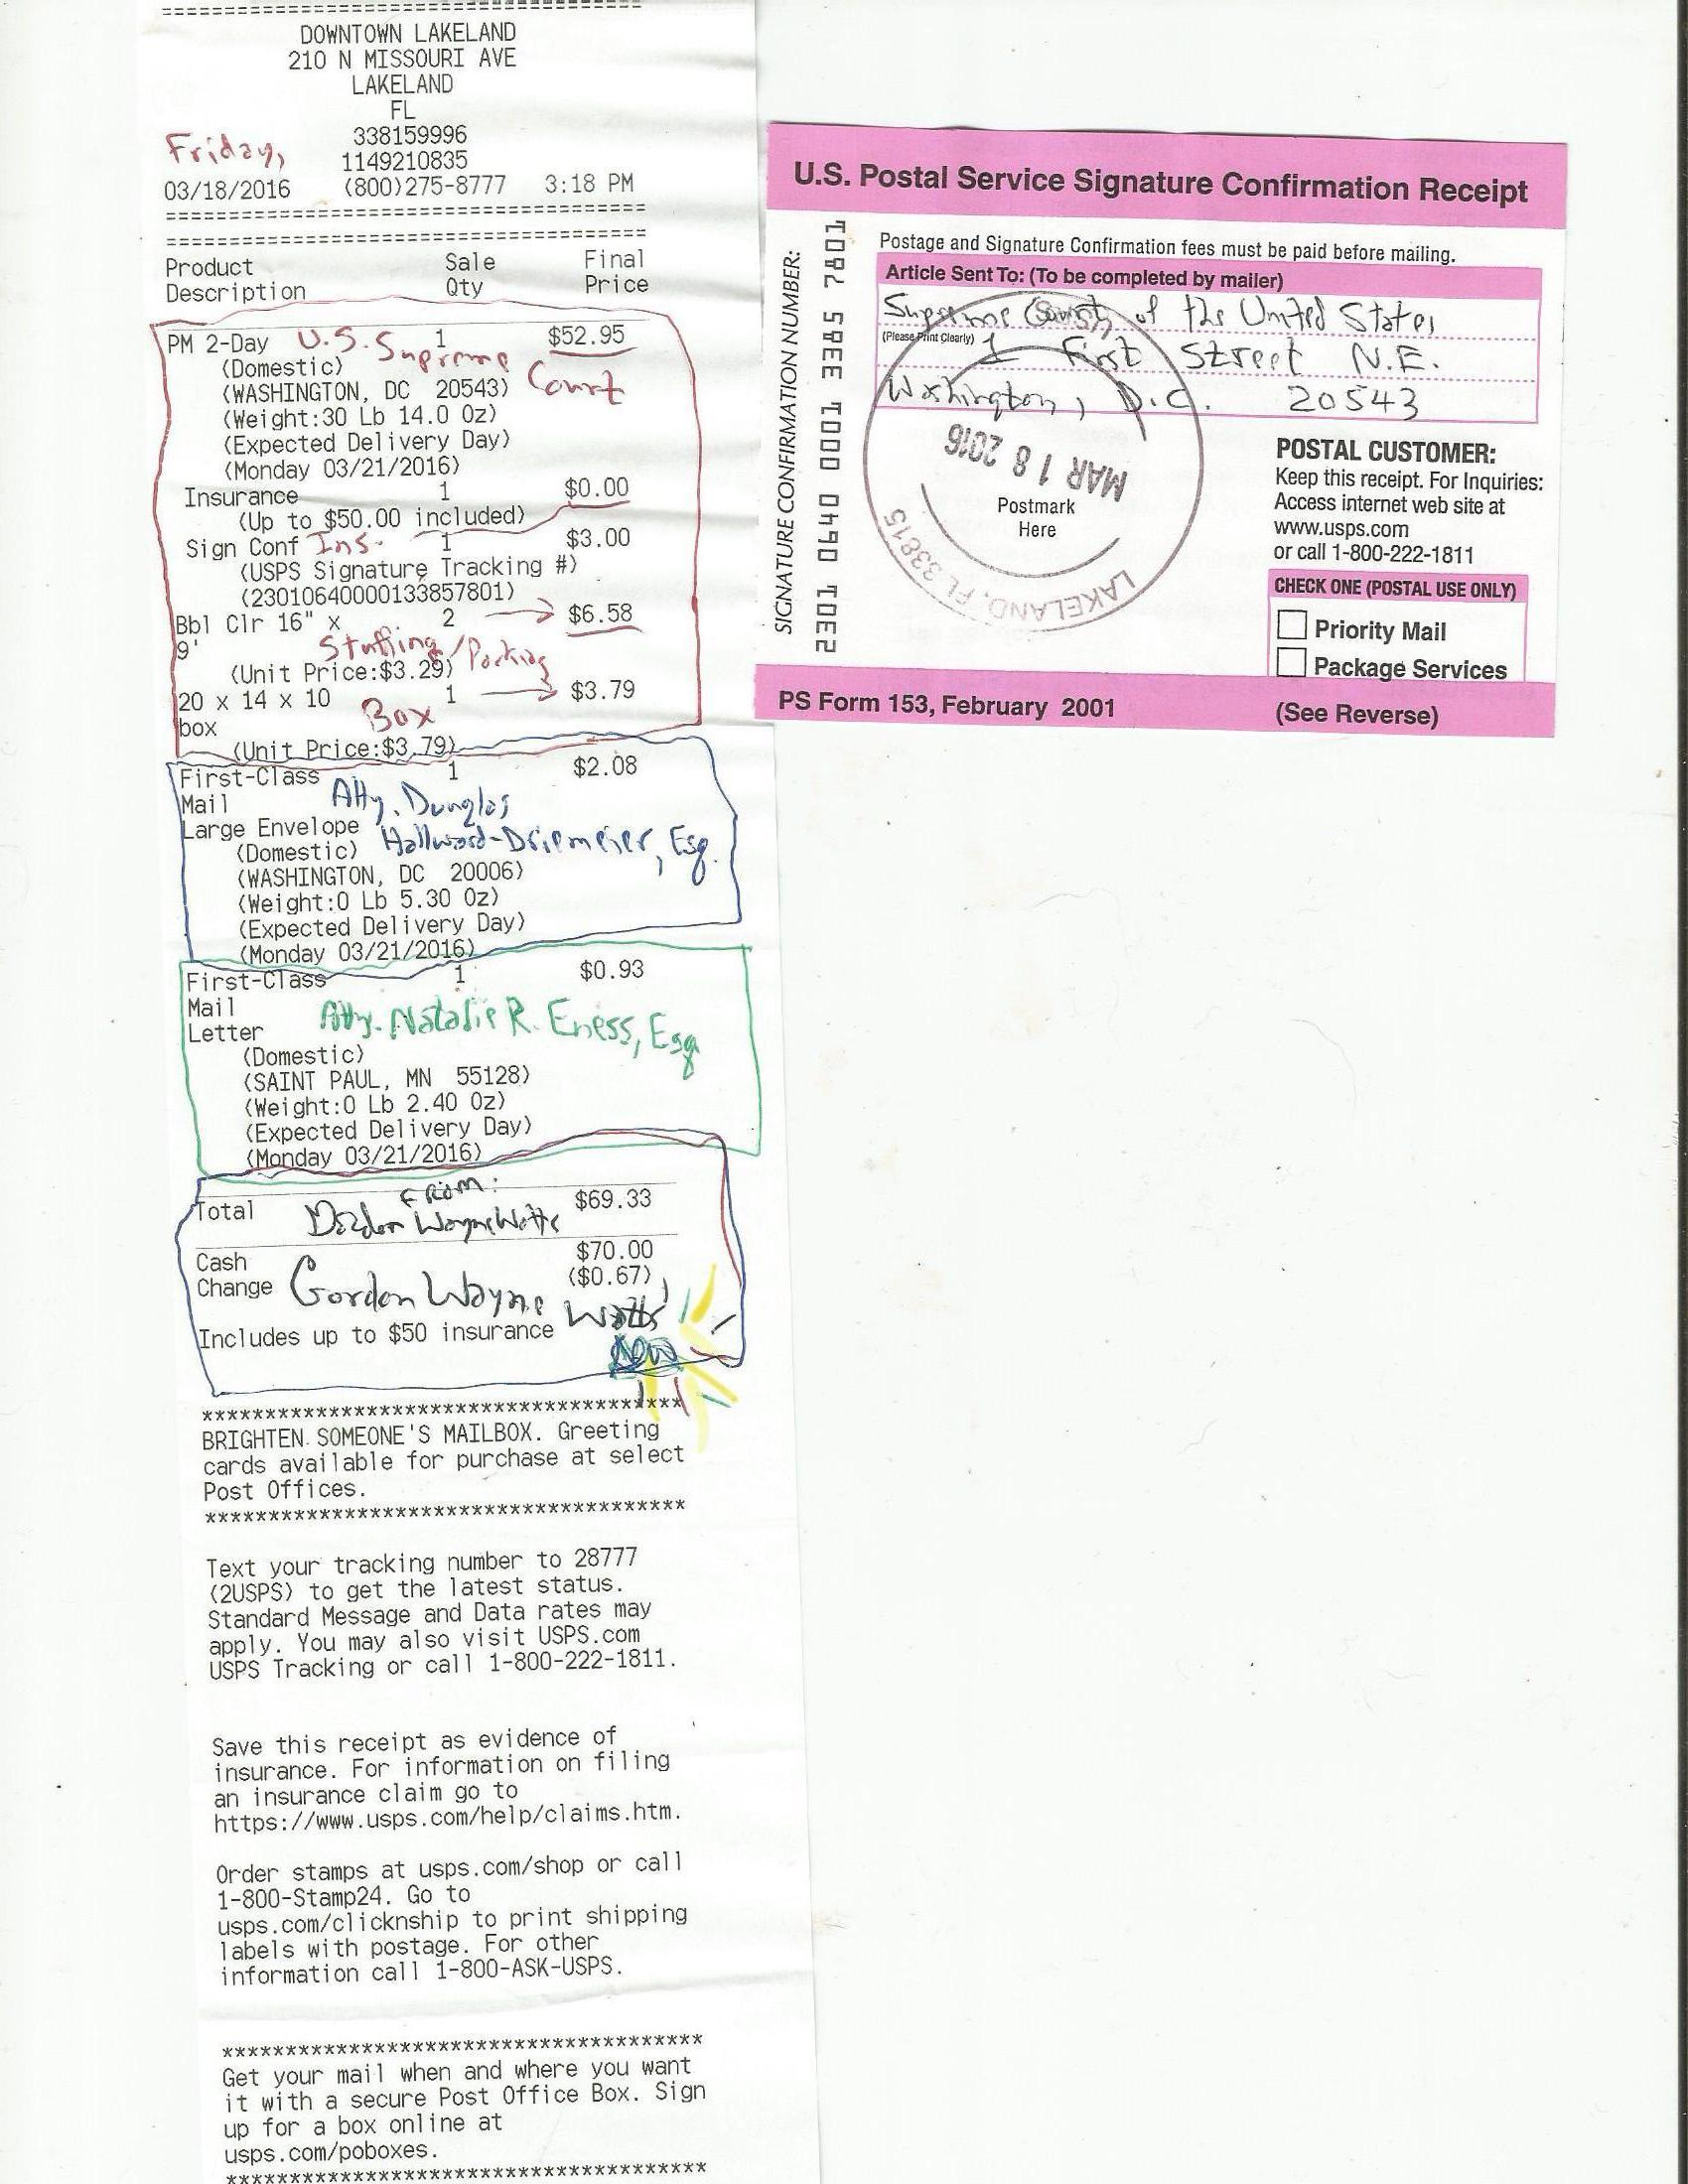 DOWNTOWN LAKELAND
210 N MISSOURI AVE
LAKELAND
FL
338159996
Friday,
1149210835
03/18/2016 (800)275-8777 3:18 PM
Product Sale Final
Description Qty Price
PM 2-Day U.S. Supreme 1 $52.95
(Domestic)
(WASHINGTON, DC 20543) Court
(Weight:30 Lb 14.0 Oz)
(Expected Delivery Day)
(Monday 03/21/2016)
Insurance 1 $0.00
(Up to $50.00 included)
Sign Conf Ins. 1 $3.00
(USPS Signature Tracking #)
(23010640000133857801)
Bbl Clr 16" x 2 $6.58
9' Stuffing/Packing
(Unit Price:$3.29)
20 x 14 x 10 1 $3.79
box Box
(Unit Price:$3.79)
First-Class 1 $2.08
Mail Atty. Douglas
Large Envelope Hallward-Driemeier, Esq.
(Domestic)
(WASHINGTON, DC 20006)
(Weight:0 Lb 5.30 Oz)
(Expected Delivery Day)
(Monday 03/21/2016)
First-Class 1 $0.93
Mail
Letter Atty. Natalie R. Eness, Esq
(Domestic)
(SAINT PAUL, MN 55128)
(Weight:0 Lb 2.40 Oz)
(Expected Delivery Day)
(Monday 03/21/2016)
FROM:
Total $69.33
Gordon Wayne Watts
Cash $70.00
Change ($0.67)
Gordon Wayne Watts
Includes up to $50 insurance
****************************************
BRIGHTEN SOMEONE'S MAILBOX. Greeting
cards available for purchase at select
Post Offices.
****************************************
Text your tracking number to 28777
(2USPS) to get the latest status.
Standard Message and Data rates may
apply. You may also visit USPS.com
USPS Tracking or call 1-800-222-1811.
Save this receipt as evidence of
insurance. For information on filing
an insurance claim go to
https://www.usps.com/help/claims.htm.
Order stamps at usps.com/shop or call
1-800-Stamp24. Go to
usps.com/clicknship to print shipping
labels with postage. For other
information call 1-800-ASK-USPS.
****************************************
Get your mail when and where you want
it with a secure Post Office Box. Sign
up for a box online at
usps.com/poboxes.
****************************************
U.S. Postal Service Signature Confirmation Receipt
SIGNATURE CONFIRMATION NUMBER:
2301 0640 0001 3385 7801
Postage and Signature Confirmation fees must be paid before mailing.
Article Sent To: (To be completed by mailer)
Supreme Court of the United States
(Please Print Clearly) 1 First Street N.E.
Washington, D.C. 20543
MAR 18 2016
LAKELAND, FL 33815
Postmark
Here
POSTAL CUSTOMER:
Keep this receipt. For Inquiries:
Access internet web site at
www.usps.com
or call 1-800-222-1811
CHECK ONE (POSTAL USE ONLY)
Priority Mail
Package Services
PS Form 153, February 2001 (See Reverse)